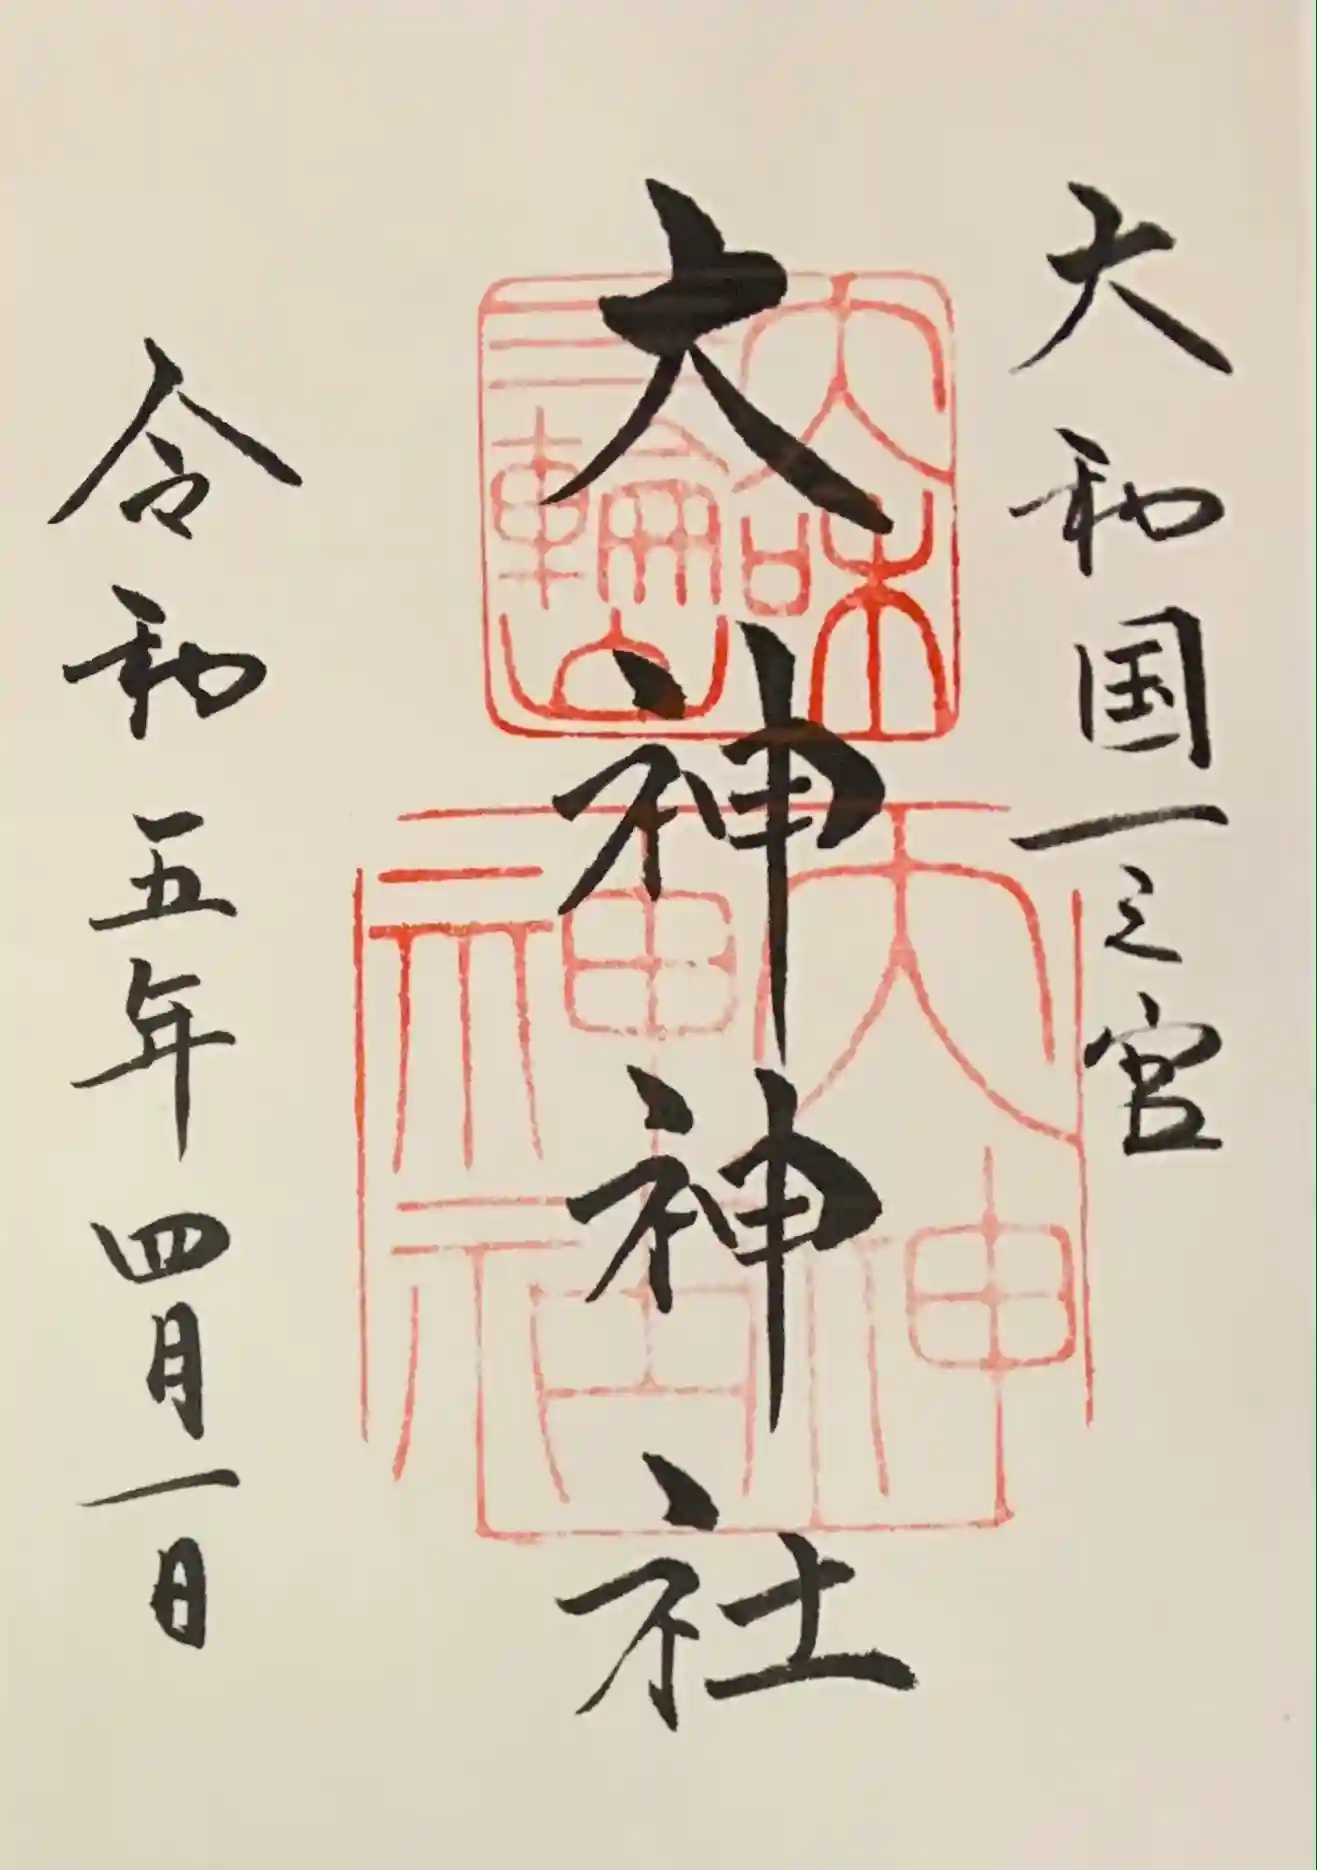 大和国一之宮
大神神社
令和五年四月一日
大和
三輪山
大神
神社